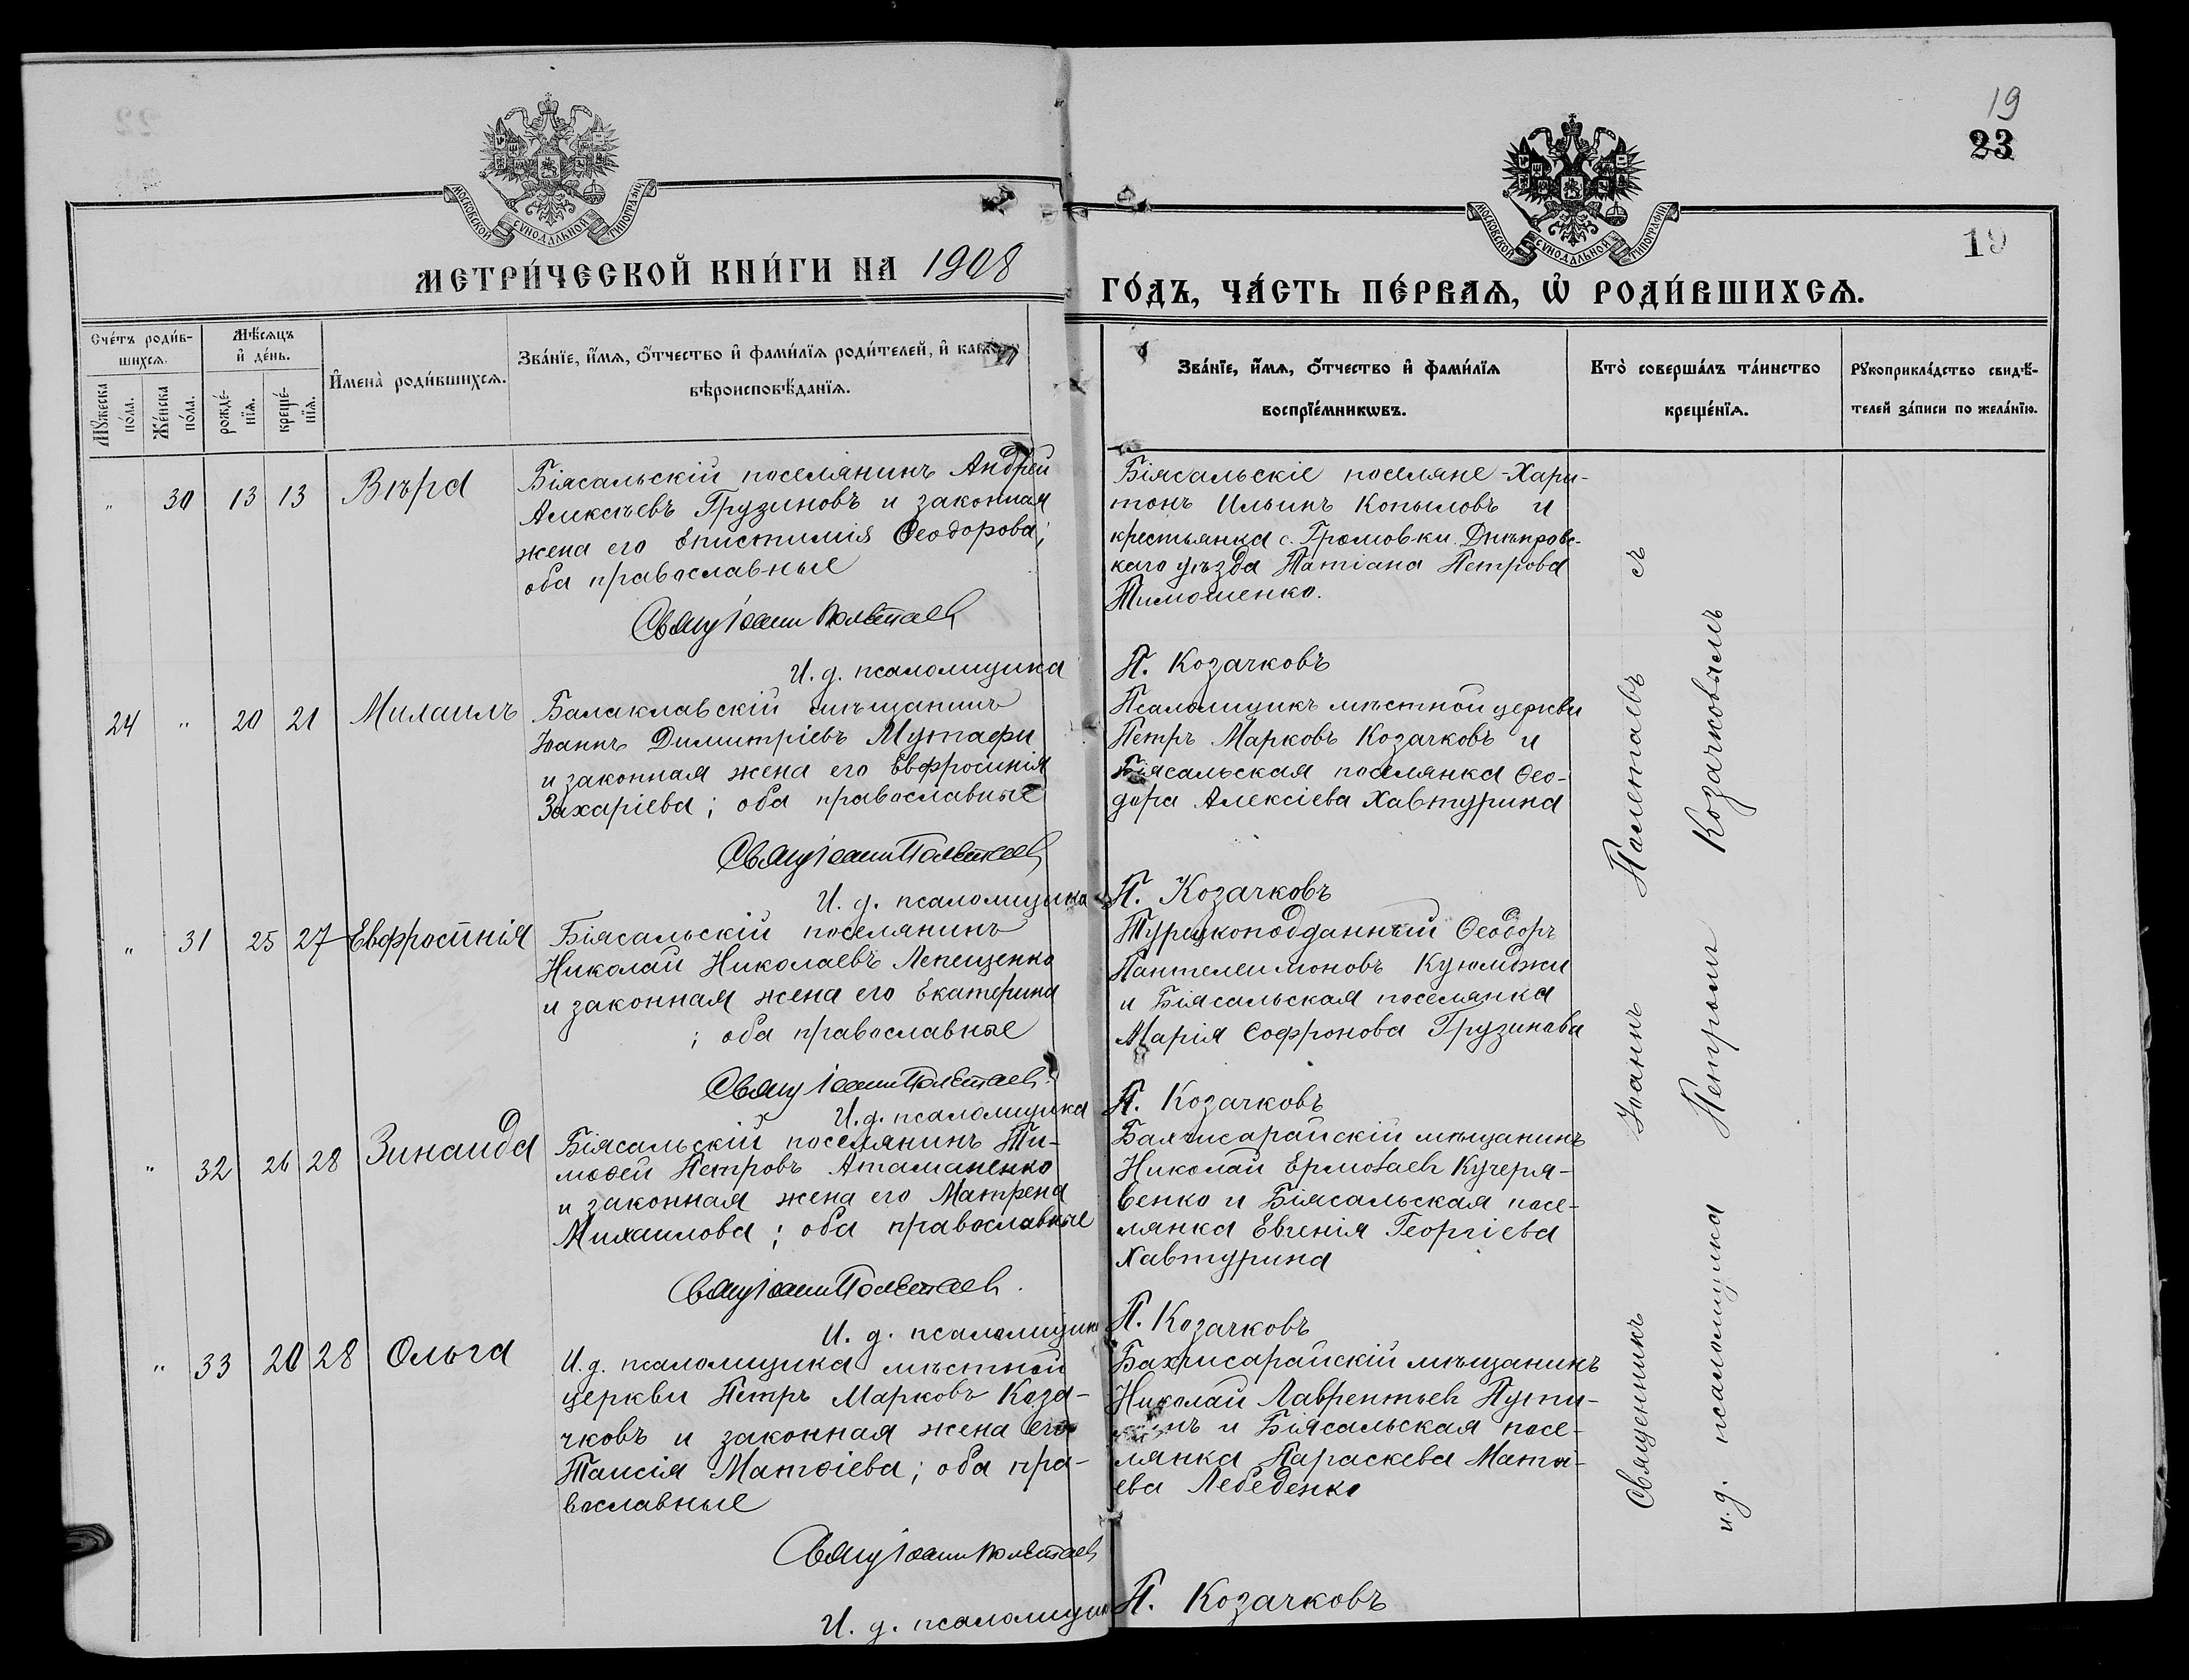 19
23
19
МОСКОВСКОЙ СѴНОДАЛЬНОЙ ТИПОГРАФІИ
МОСКОВСКОЙ СѴНОДАЛЬНОЙ ТИПОГРАФІИ
МЕТРИ́ЧЕСКОЙ КНИ́ГИ НА 1908
ГО́ДЪ, ЧА́СТЬ ПЕ́РВАѦ, Ѡ҆ РОДИ́ВШИХСѦ.
Сче́тъ роди́в-
шихсѧ.
Мꙋ́жеска
по́ла.
Же́нска
по́ла.
Мѣ́сѧцъ
и҆ де́нь.
рожде́-
нїѧ.
креще́-
нїѧ.
И҆мена̀ роди́вшихсѧ.
Зва́нїе, и҆́мѧ, ѻ҆́тчество и҆ фами́лїѧ роди́телей, и҆
вѣроисповѣ́данїѧ.
Зва́нїе, и҆́мѧ, ѻ҆́тчество и҆ фами́лїѧ
воспрїе́мникѡвъ.
Кто̀ соверша́лъ та́инство
креще́нїѧ.
Рꙋкоприкла́дство свидѣ́-
телей за́писи по жела́нїю.
" 30 13 13 Вѣра
Біясальскій поселянинъ Андрей
Алексѣевъ Грузиновъ и законная
жена его Епистимія Ѳеодорова;
оба православные
Свящ Іоаннъ Полетаев
И. д. псаломщика
Біясальскіе поселяне - Хари-
тонъ Ильинъ Копыловъ и
крестьянка с. Громовки Днѣпровс-
каго уѣзда Татіана Петрова
Тимошенко.
П. Козачковъ
24 " 20 21 Михаилъ
Балаклавскій мѣщанинъ
Іоаннъ Димитріевъ Мутафи
и законная жена его Евфросинія
Захаріева; оба православные
Свящ Іоаннъ Полетаев
И. д. псаломщика
Псаломщикъ мѣстной церкви
Петръ Марковъ Козачковъ и
Біясальская поселянка Ѳео-
дора Алексіева Хавтурина
П. Козачковъ
" 31 25 27 Евфросинія
Біясальскій поселянинъ
Николай Николаевъ Лепещенко
и законная жена его Екатерина
; оба православные
Свящ Іоаннъ Полетаев.
И. д. псаломщика
Турецкоподданный Ѳеодоръ
Пантелеимоновъ Куюмджи
и Біясальская поселянка
Марія Софронова Грузинова
П. Козачковъ
" 32 26 28 Зинаида
Біясальскій поселянинъ Ти-
моѳей Петровъ Атаманенко
и законная жена его Матрена
Михаилова; оба православные
Свящ Іоаннъ Полетаев.
И. д. псаломщика
Бахчисарайскій мѣщанинъ
Николай Ермолаев Кучеря-
венко и Біясальская посе-
лянка Евгенія Георгіева
Хавтурина
П. Козачковъ
" 33 20 28 Ольга
И. д. псаломщика мѣстной
церкви Петръ Марковъ Коза-
чковъ и законная жена его
Таисія Матѳіева; оба пра-
вославные
Свящ Іоаннъ Полетаев
И. д. псаломщик
Бахчисарайскій мѣщанинъ
Николай Лаврентьев
и Біясальская посе-
лянка Параскева Матѳі-
ева Лебеденко
П. Козачковъ
Священникъ Іоаннъ Полетаевъ съ
и. д. псаломщика Петромъ Козачковымъ